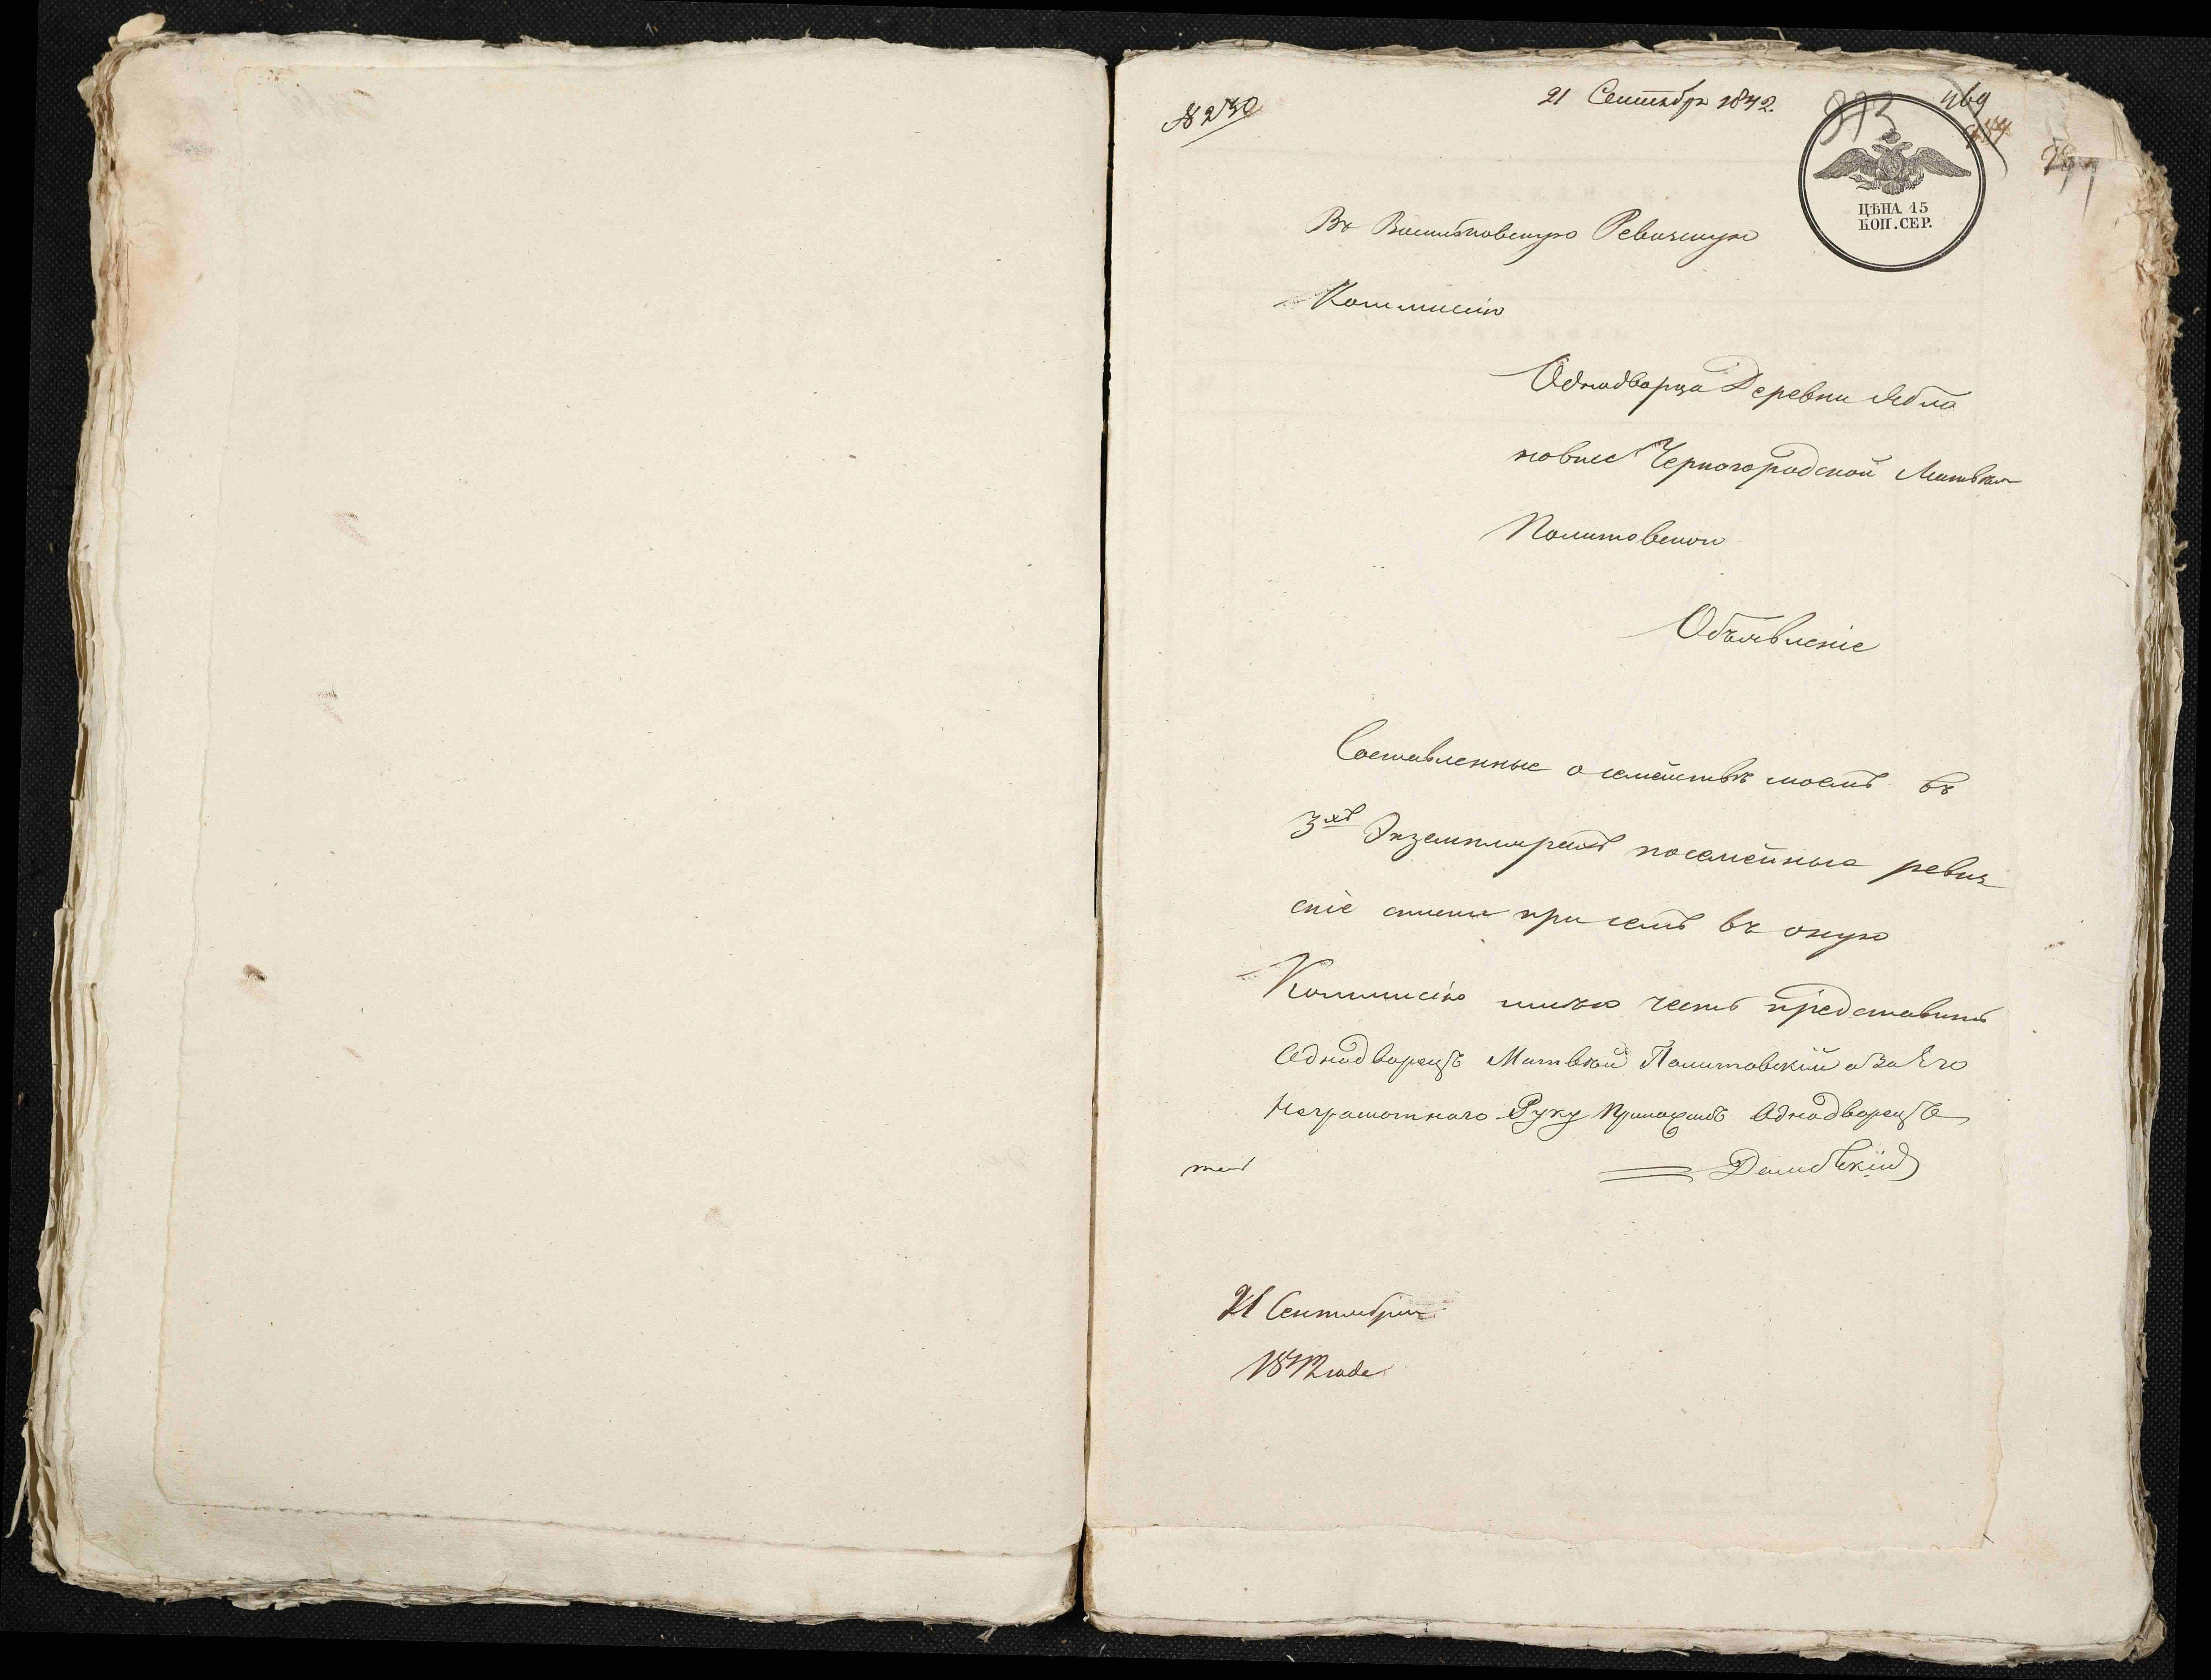 21 Сентября 1842.
893
469
ЦѢНА 15
КОП. СЕР.
Въ Ревизскую
Коммисію
Однодворца Деревни Ябло
новки Черногородской Матвѣя
Политовского
Объявленіе
Составленные о семействѣ моемъ въ
3хъ Экземплярахъ посемейныя ревиз
скіе списки при семъ въ оную
Коммисію имѣю честь представить
Однодворецъ Матвѣй Политовскій а за Его
Неграмотнаго Руку Приложилъ Однодворецъ
21 Сентября
1842 года